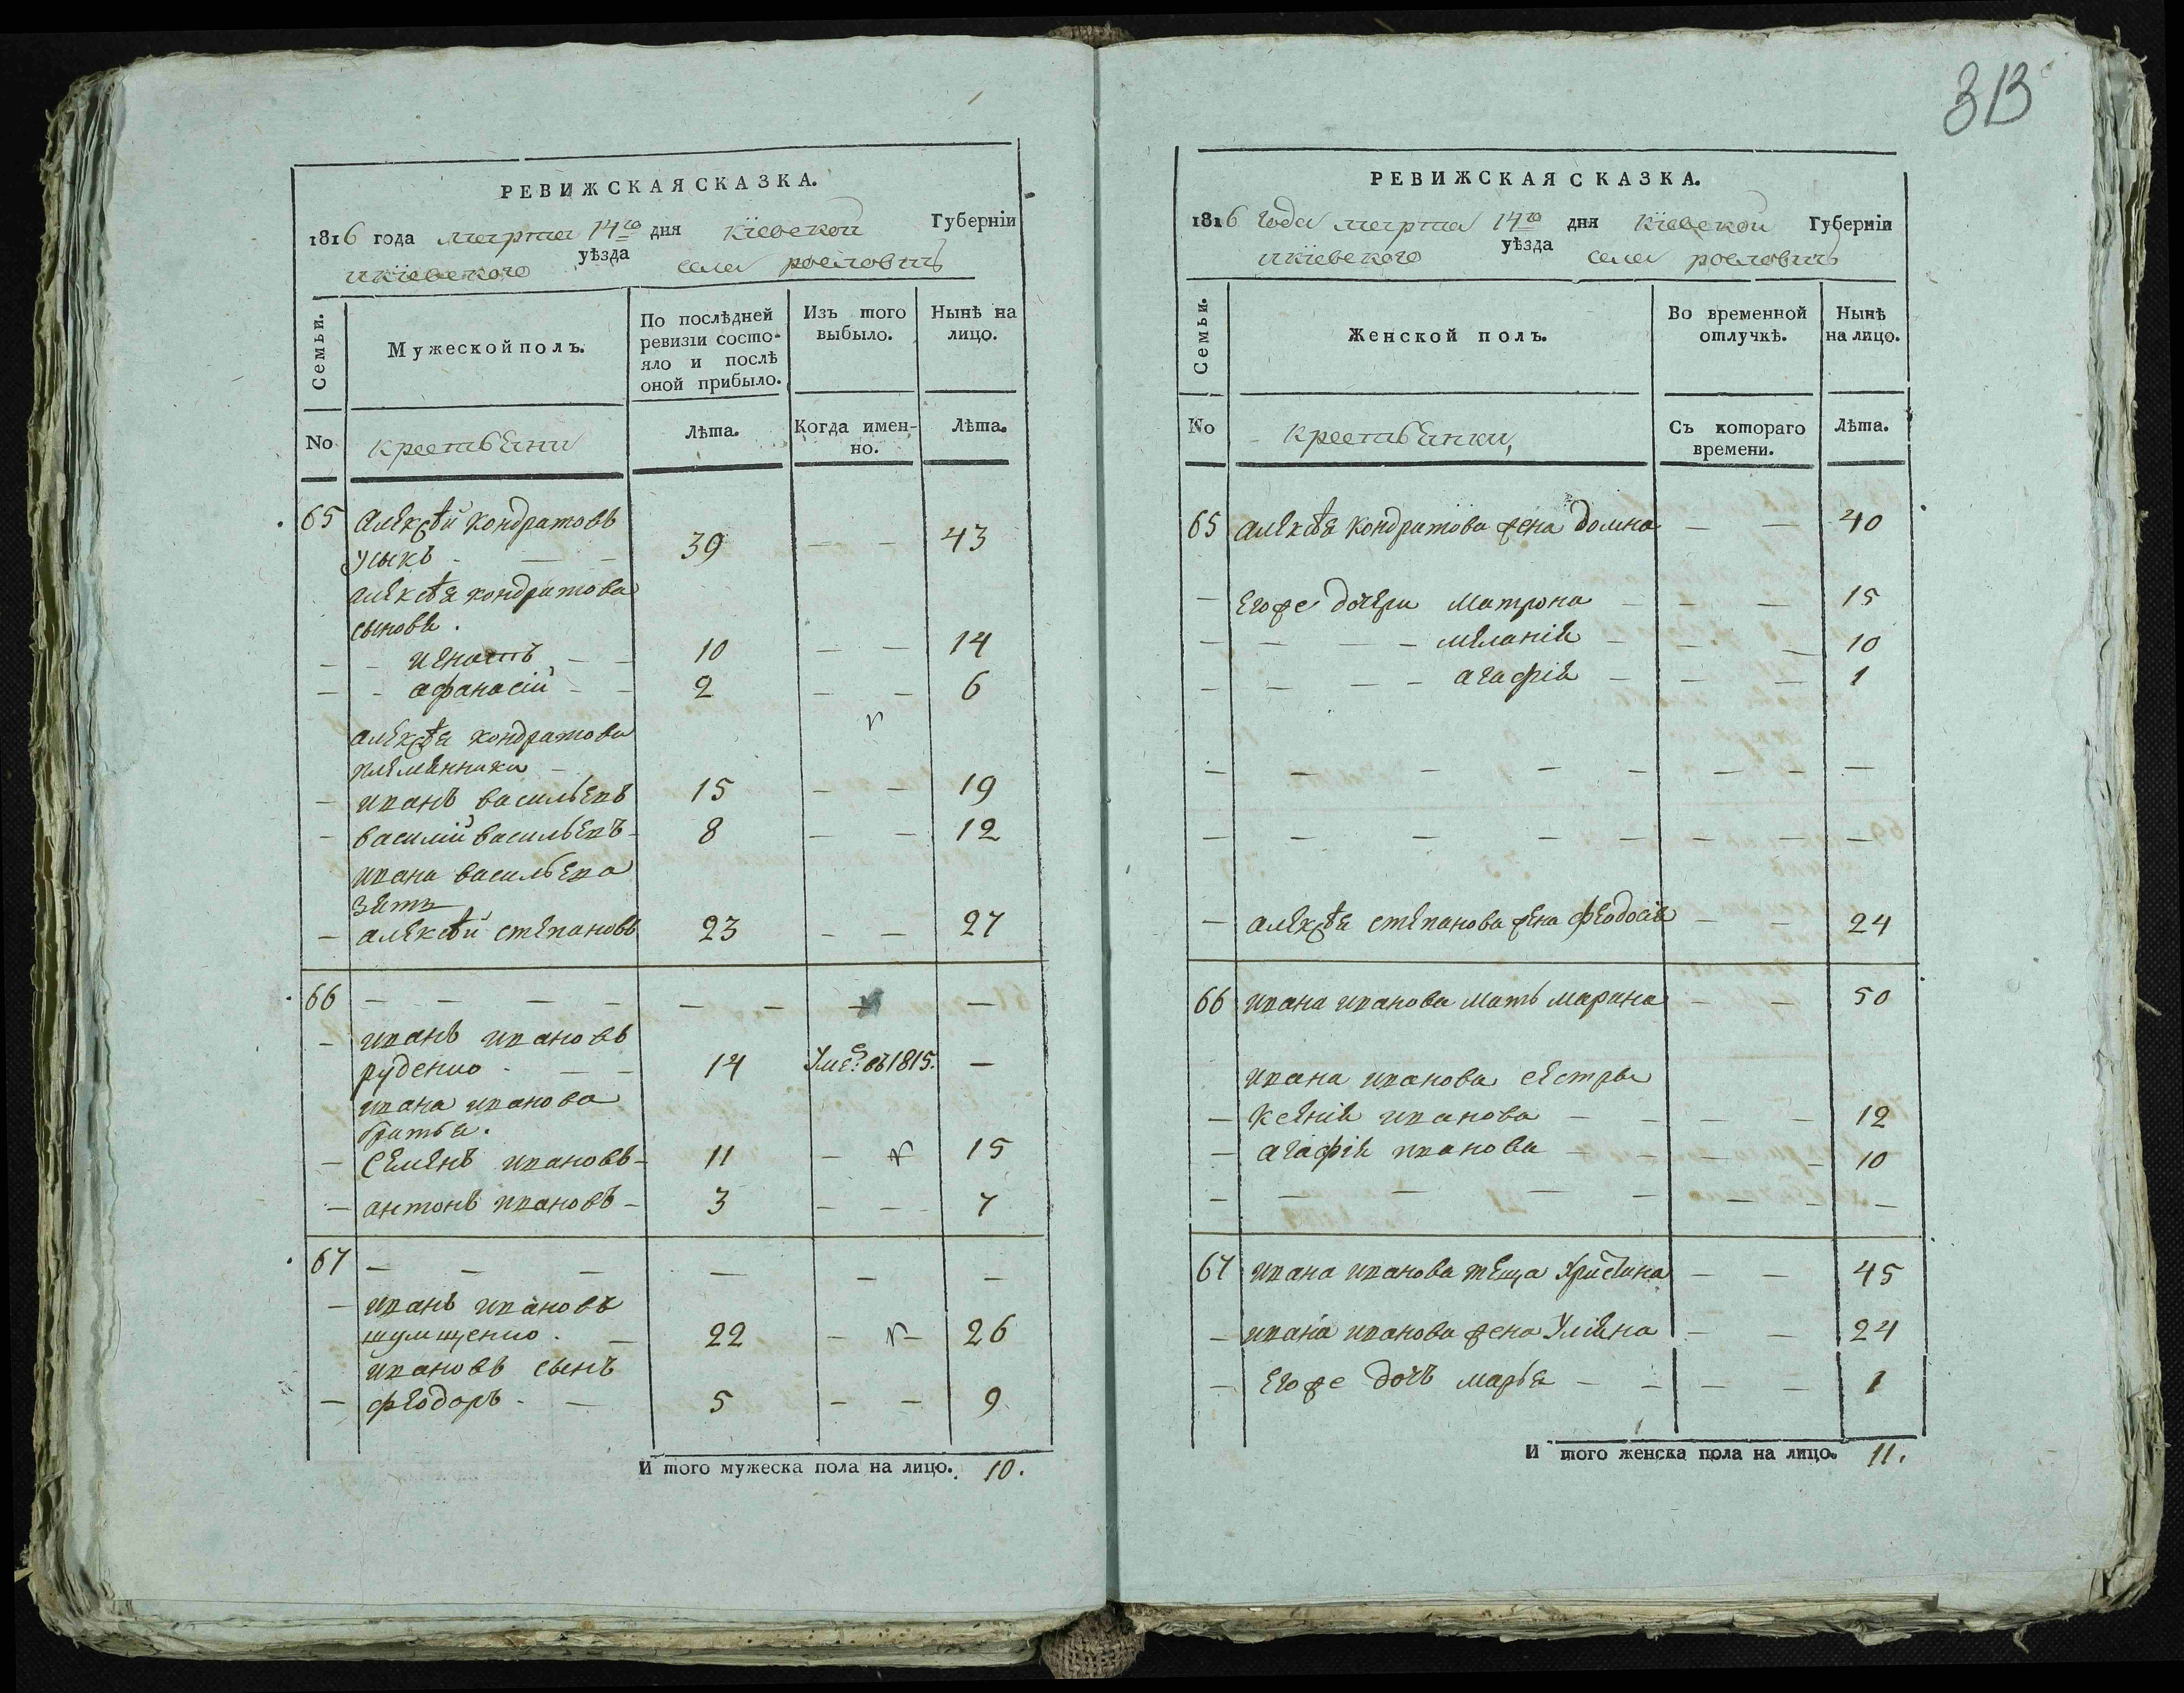 313
РЕВИЖСКАЯ СКАЗКА.
1816 года марта 14го дня Кіевской Губерніи
икіевского уѣзда села рословичъ
Семьи.
Мужеской полъ.
По послѣдней ревизіи состояло и послѣ оной прибыло.
Изъ того выбыло.
Нынѣ на лицо.
No
крестьяни
Лѣта.
Когда именно.
Лѣта.
65 Алексѣй Кондратовъ
Усыкъ - — — 39 — — 43
алексѣя кондратова
сынова .
— - игнатъ - — 10 — — 14
— - афанасій - — 2 — — 6
алексѣя кондратова
племенники —
— иванъ васильевъ 15 — — 19
— василій васильевъ - 8 — — 12
ивана васильева
зять
— алексѣй степановъ 23 — — 27
66 — — — — — — — —
— иванъ ивановъ
руденко - — — 14 Уме: въ 1815. —
ивана иванова
братья.
— Семенъ ивановъ - 11 — 15
— антонъ ивановъ - 3 — — 7
67 — — — — — —
— иванъ ивановъ
22 — — 26
ивановъ сынъ
— феодоръ - — 5 — — 9
И того мужеска пола на лицо. 10.
РЕВИЖСКАЯ СКАЗКА.
1816 года марта 14го дня Кіевской Губерніи
икіевского уѣзда села рословичъ
Семьи.
Женской полъ.
Во временной отлучкѣ.
Нынѣ на лицо.
No
крестьянки,
Съ котораго времени.
Лѣта.
65 алексѣя Кондратова жена домна — — 40
— Егоже дочери матрона — — — 15
— — — - меланія — — — 10
— — — - агафія — — — 1
— — — — — — — —
— — — — — — — —
— алексѣя степанова жена феодосія — — 24
66 ивана иванова мать марина — — 50
ивана иванова сестры
— Ксенія иванова — — — — 12
— агафія иванова — — — — 10
— — — — — — — —
67 ивана иванова теща Христина — — 45
— ивана иванова жена Уліяна — — 24
— Егоже дочь марья — — — — 1
И того женска пола на лицо. 11.